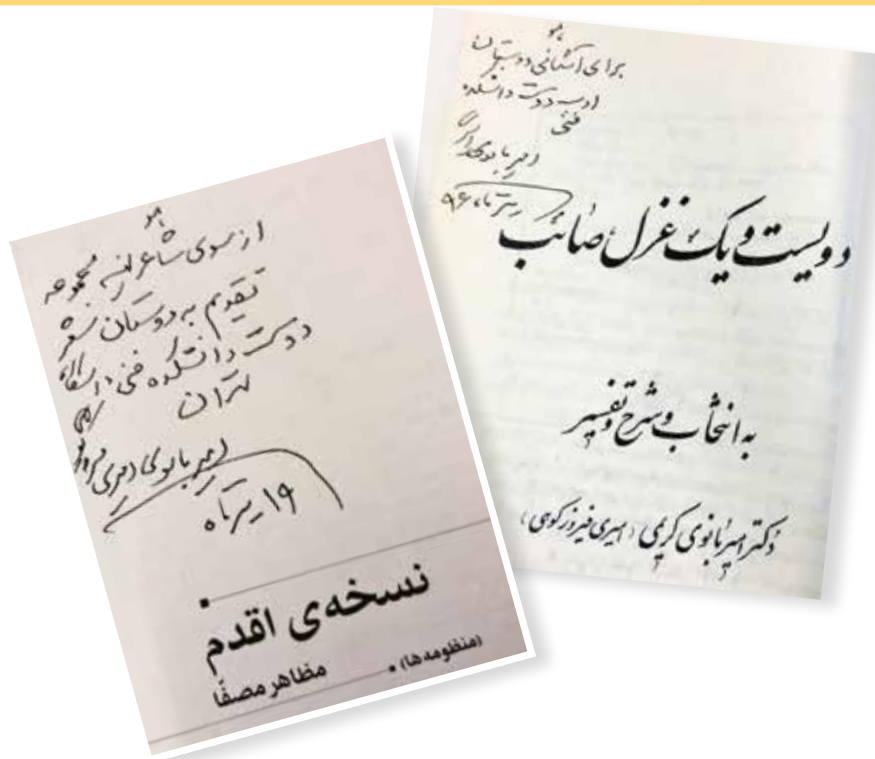 هو
برای آشنائی دوستان
ادب دوست دانشکده
فنی
امیربانوی
تیرماه ۹۶
دویست و یک غزل صائب
به انتخاب و شرح و تفسیر
دکتر امیربانوی کریمی (امیری فیروزکوهی)
هو
از سوی شاعر این مجموعه
تقدیم به دوستان شعر
دوست دانشکده فنی دانشگاه
تهران
امیربانوی امیری
۱۹ تیرماه
نسخه‌ی اقدم
(منظومه‌ها) • مظاهر مصفّا